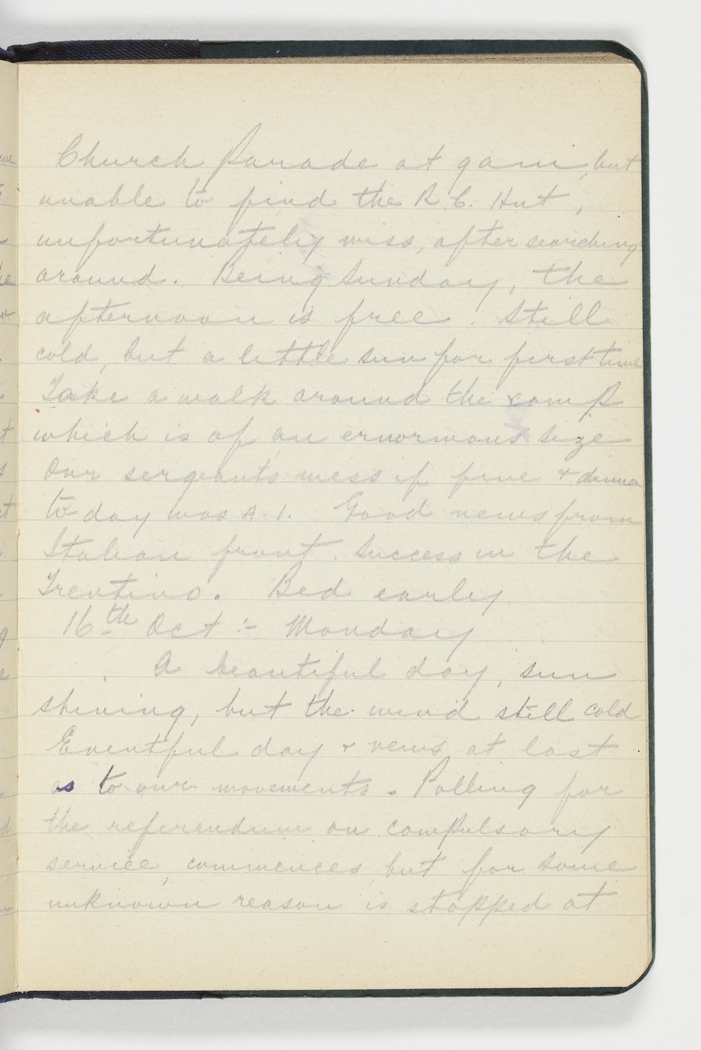 Church Parade at 9 am, but
unable to find the R.C. Hut,
unfortunately miss, after searching
around. Being Sunday, the
afternoon is free. Still
cold, but a little sun for first time
Take a walk around the camp
which is of an enormous size
Our sergeants mess is fine & dinner
to day was A.1. Good news from
Italian front. Success in the
Trentino. Bed early.
16th Oct :- Monday
A beautiful day, sun
shining, but the wind still cold
Eventful day & news at last
as to our movements. Polling for
the referendum on compulsory
service, commences, but for some
unknown reason is stopped at